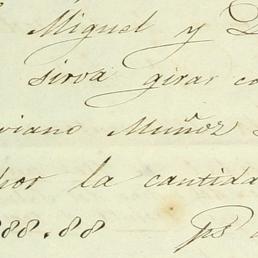 Miguel y D
sirva girar co
viano Muñoz
por la cantida
888.88 ps